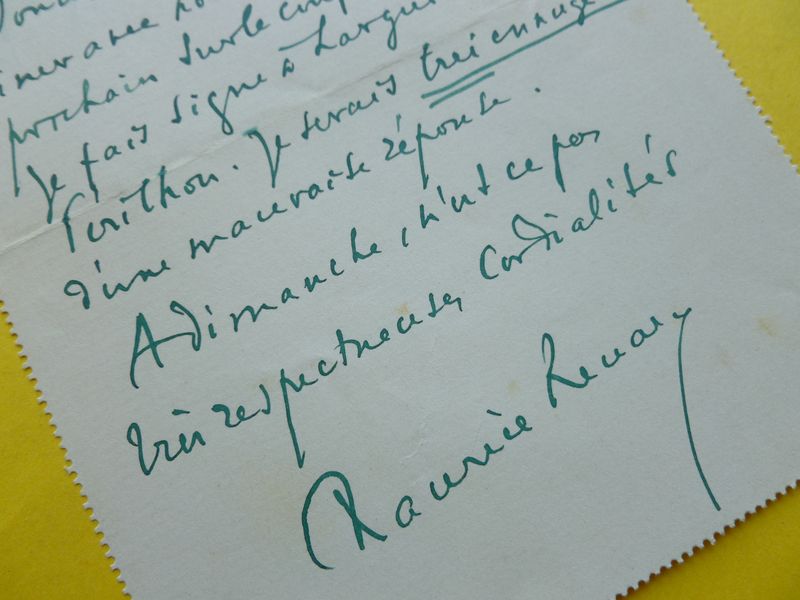 prochain sur le
Je fais signe à
Je serais très ennuyé
d'une mauvaise réponse.
A dimanche, n'est ce pas
très respectueuses cordialités
Maurice Renard